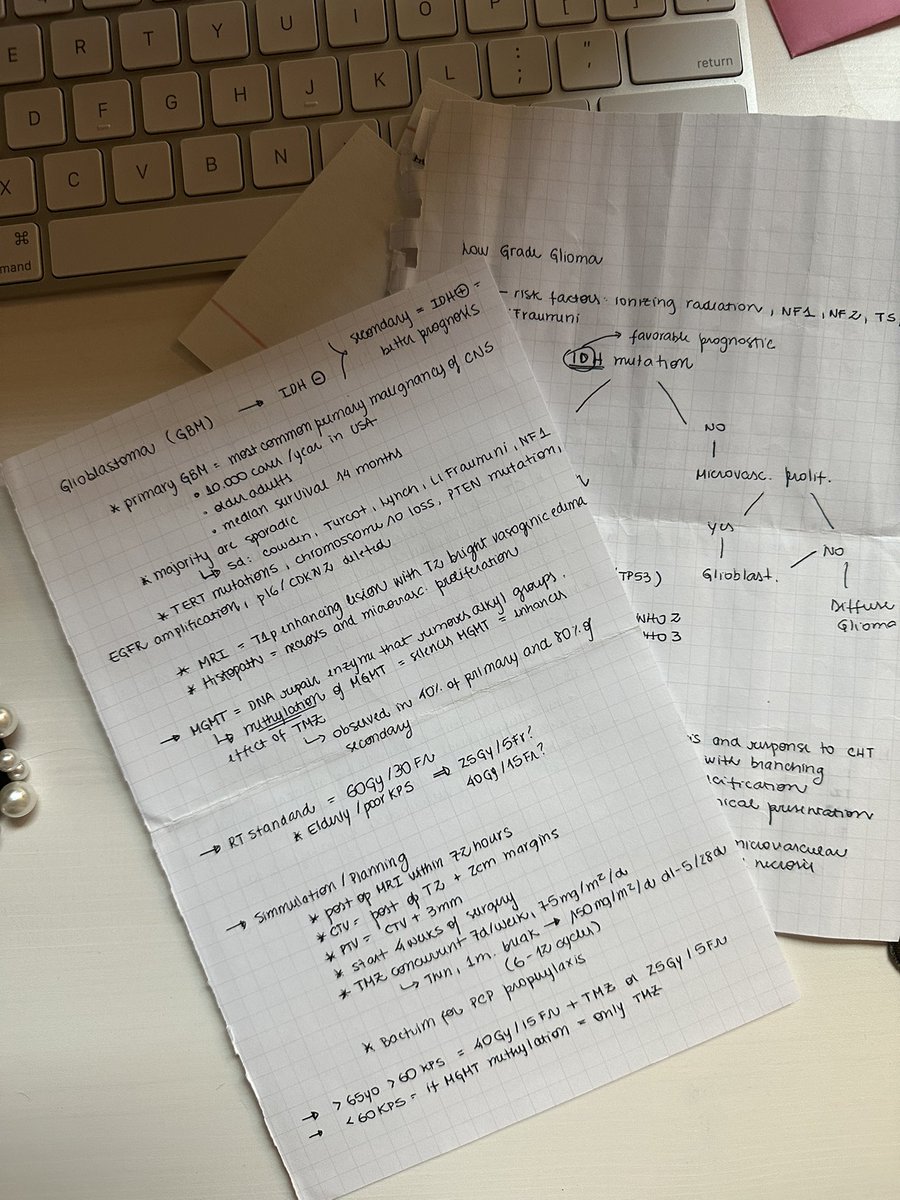 E R T Y U I O P [ ]
D F G H J K L : ; " ' return
X C V B N
⌘
mand
Low Grade Glioma
- risk factors: ionizing radiation, NF1, NF2, TS,
Fraumini
→ favorable prognostic
IDH mutation
NO
Microvasc. prolif.
yes
NO
Glioblast.
Diffuse
Glioma
TP53)
WHO 2
HO 3
is and response to CHT
with branching
lcification
nical presentation
microvascular
necrosis
Glioblastoma (GBM) → IDH ⊖
secondary = IDH ⊕ =
better prognosis
* primary GBM = most common primary malignancy of CNS
• 10.000 cases/year in USA
• older adults
• median survival 14 months
* majority are sporadic
↳ sd: Cowden, Turcot, Lynch, Li Fraumini, NF1
* TERT mutations, chromosome 10 loss, PTEN mutation,
EGFR amplification, p16/CDKN2 deleted
* MRI = T1p enhancing lesion with T2 bright vasogenic edema
* Histopath = necrosis and microvasc. proliferation
→ MGMT = DNA repair enzyme that removes alkyl groups.
↳ methylation of MGMT = silences MGMT = enhances
effect of TMZ
↳ observed in 40% of primary and 80% of
secondary
→ RT standard = 60Gy/30FN
* Elderly/poor KPS ⇒ 25Gy/5Fr?
40Gy/15Fn?
→ Simmulation/Planning
* post op MRI within 72 hours
* CTV = post op T2 + 2cm margins
* PTV = CTV + 3mm
* start 4 weeks of surgery
* TMZ concurrent 7d/week, 75mg/m²/d
↳ Then, 1m. break → 150mg/m²/d d1-5/28d
(6-12 cycles)
* Bactrim for PCP prophylaxis
→ >65yo >60 KPS = 40Gy/15FN + TMZ or 25Gy/5FN
→ <60KPS = if MGMT methylation = only TMZ